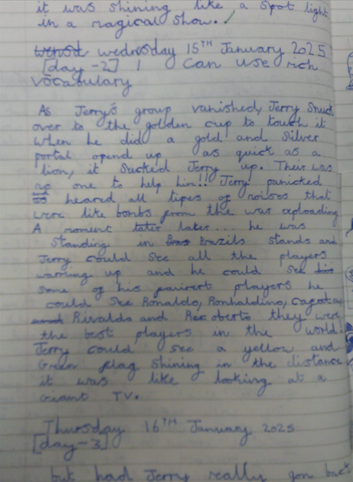 it was shining like a spot light
in a magical show.
wednesday 15TH January 2025
[day-2] I can use rich
vocabulary
As Jerry's group vanished, Jerry snuck
over to the golden cup to touch it
when he did a gold and silver
portal opend up as quick as a
lion, it sucked Jerry up. Their was
no one to help him!! Jerry panicked
heared all tipes of noises that
were like bombs from the war exploading
A moment later... he was
standing in brazils stands and
Jerry could see all the players
warming up and he could see
some of his faivert players he
could see Ronaldo, Ronhaldino,
Rivaldo and they were
the best players in the world
Jerry could see a yellow and
Green flag shining in the distance
it was like looking at a
Giant TV.
Thursday 16TH January 2025
[day-3]
but had Jerry really gon